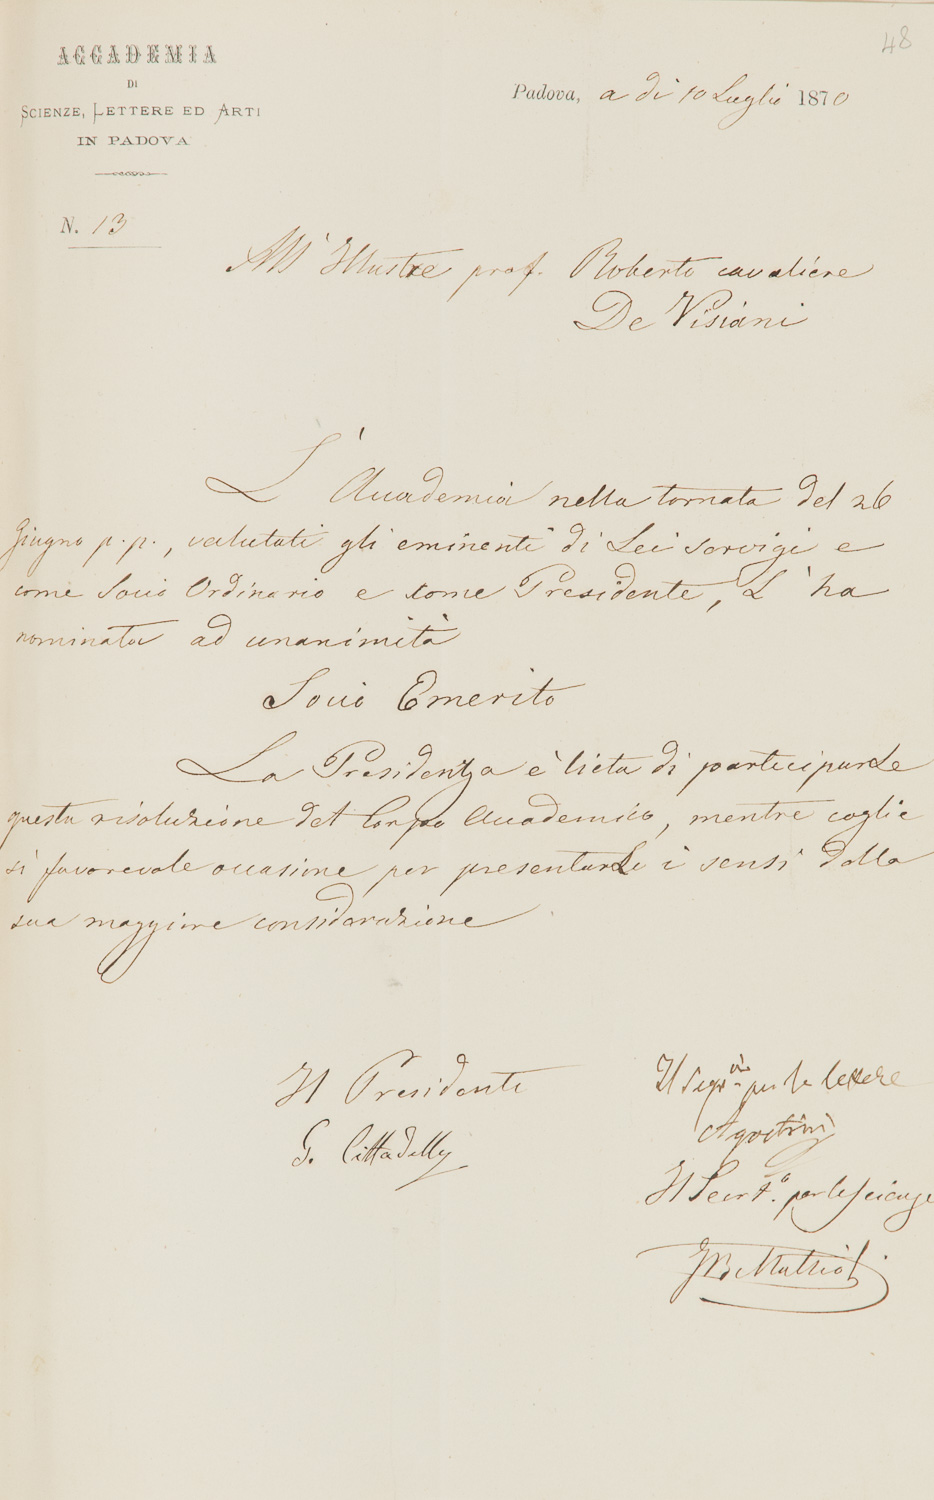 48
ACCADEMIA
DI
SCIENZE, LETTERE ED ARTI
IN PADOVA
Padova, a dì 10 Luglio 1870
N. 13
All' Illustre prof. Roberto cavaliere
De Visiani
L' Accademia nella tornata del 26
Giugno p.p., valutati gli eminenti di Lei servigi e
come Socio Ordinario e come Presidente, L' ha
nominata ad unanimità
Socio Emerito
La Presidenza è lieta di parteciparLe
questa risoluzione del Corpo Accademico, mentre coglie
sì favorevole occasione per presentarLe i sensi della
sua maggiore considerazione
Il Presidente
G. Cittadella
Il Segr.rio per le lettere
Agostini
Il Secrt.o per le Scienze